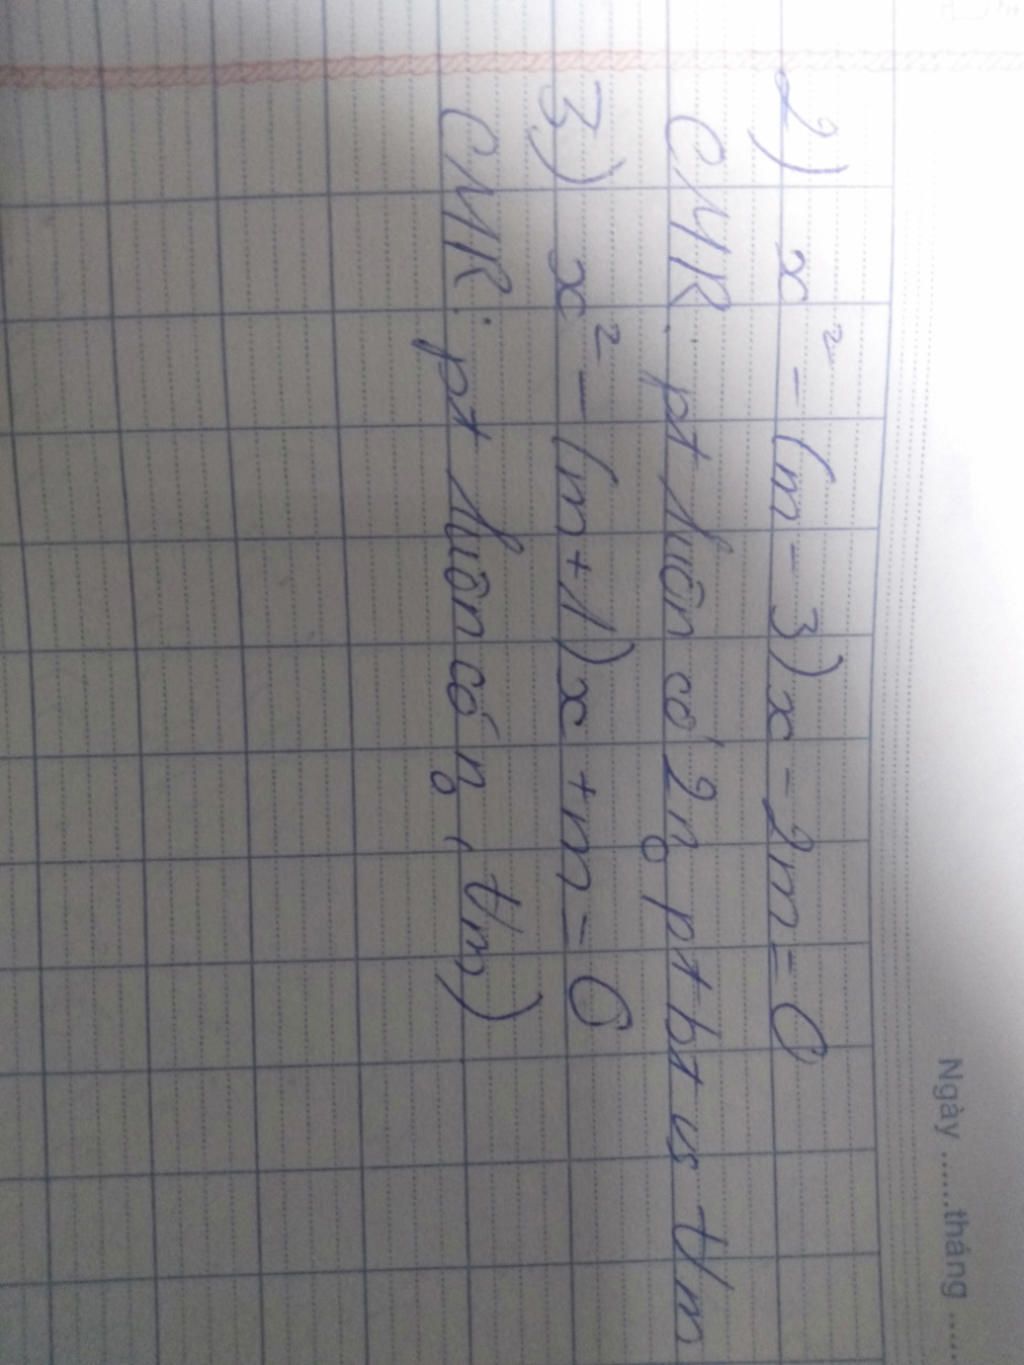 Ngày ......tháng .....
2) x² - (m - 3)x - 2m = 0
CMR: pt luôn có 2 no pt bt vs ∀m
3) x² - (m + 1)x + m = 0
CMR: pt luôn có no, ∀m)